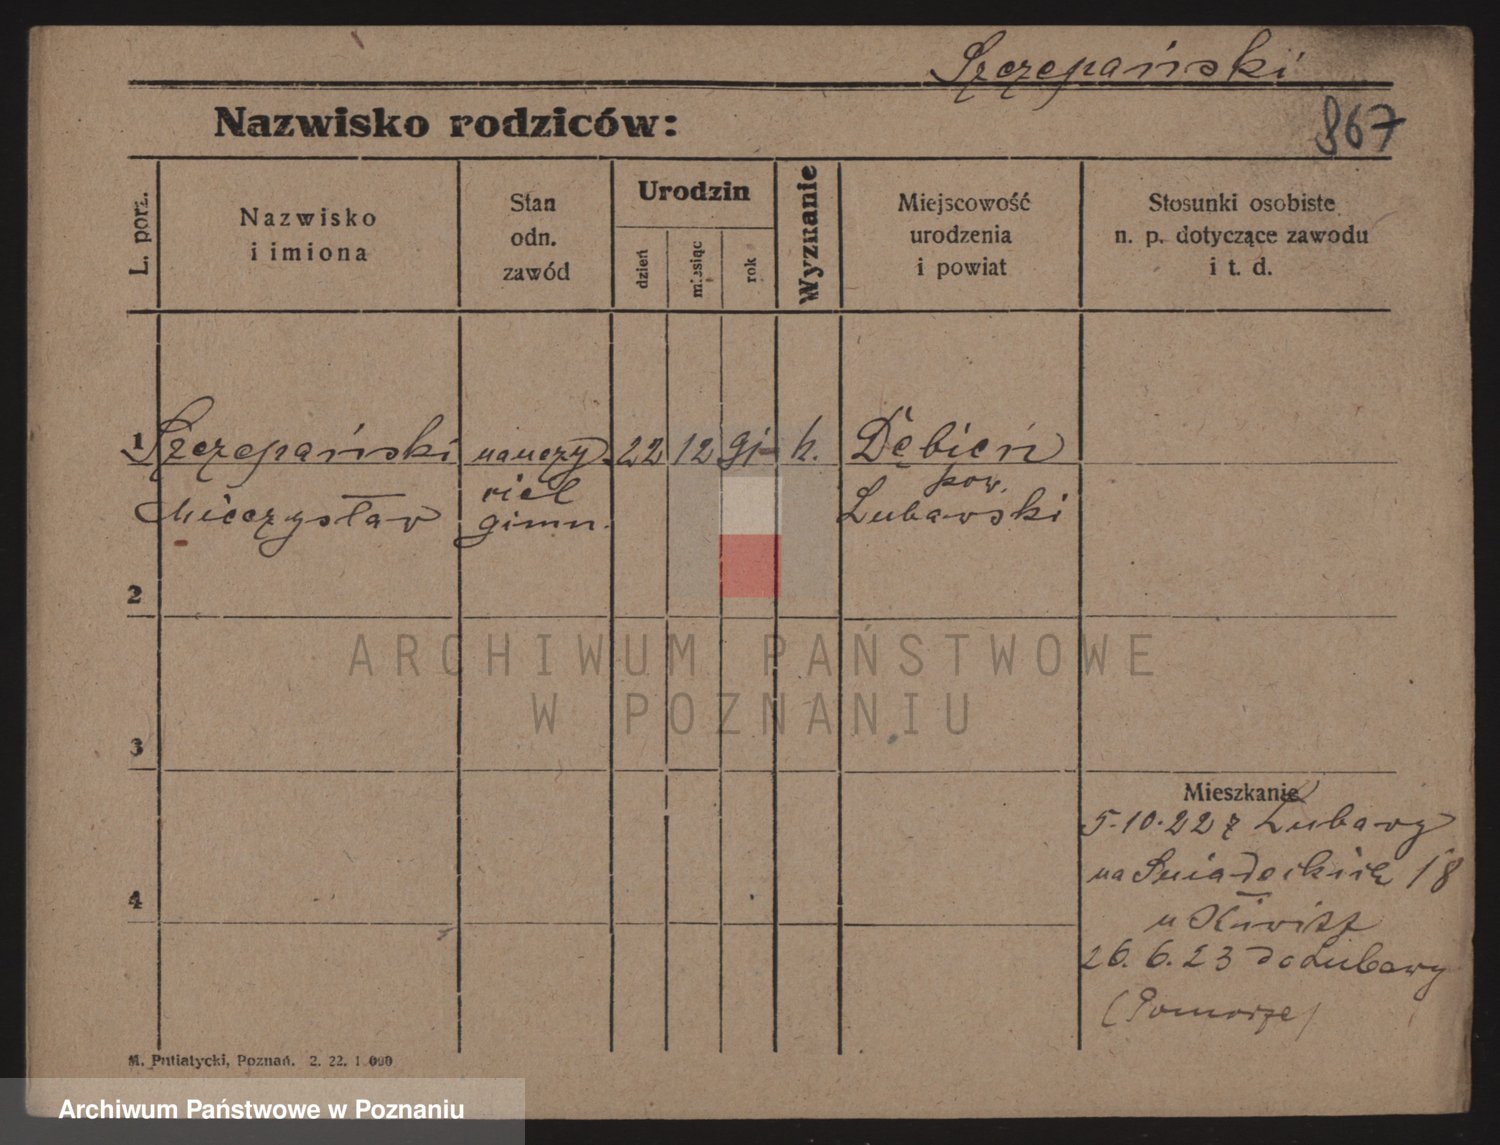 Szczepański
Nazwisko rodziców:
867
L. porz.
Nazwisko
i imiona
Stan
odn.
zawód
Urodzin
dzień
miesiąc
rok
Wyznanie
Miejscowość
urodzenia
i powiat
Stosunki osobiste
n. p. dotyczące zawodu
i t. d.
1 Szczepański nauczy 22 12 91 k. Dębień
Mieczysław
ciel
gimn.
pow.
Lubawski
2
ARCHIWUM PAŃSTWOWE
W POZNANIU
3
Mieszkanie
5.10.22 z Lubawy
na Śniadeckich 18
u
4
26.6.23 do Lubawy
(Pomorze)
M. Putiatycki, Poznań. 2. 22. 1 000
Archiwum Państwowe w Poznaniu